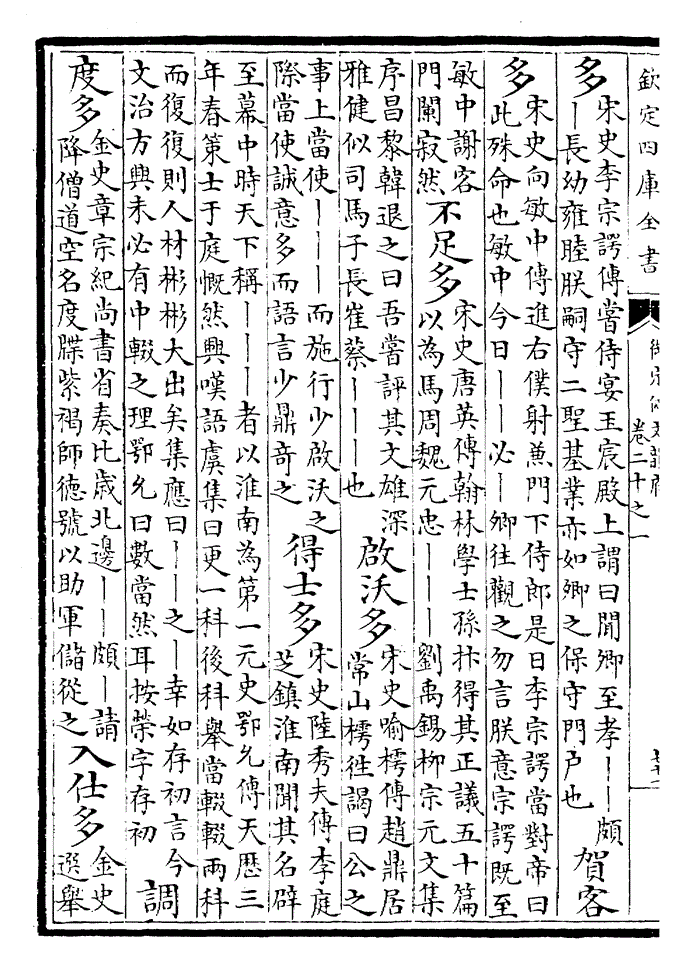 欽定四庫全書
卷二十之一
多
宋史李宗諤傳嘗侍宴玉宸殿上謂曰聞卿至孝丨丨頗
丨長幼雍睦朕嗣守二聖基業亦如卿之保守門戶也
賀客
多
宋史向敏中傳進右僕射兼門下侍郎是日李宗諤當對帝曰
此殊命也敏中今日丨丨必丨卿往觀之勿言朕意宗諤既至
敏中謝客
門闌寂然
不足多
宋史唐英傳翰林學士孫抃得其正議五十篇
以為馬周魏元忠丨丨丨劉禹錫柳宗元文集
序昌黎韓退之曰吾嘗評其文雄深
雅健似司馬子長崔蔡丨丨丨也
啟沃多
宋史喻樗傳趙鼎居
常山樗徃謁曰公之
事上當使丨丨丨而施行少啟沃之
際當使誠意多而語言少鼎竒之
得士多
宋史陸秀夫傳李庭
芝鎮淮南聞其名辟
至幕中時天下稱丨丨丨者以淮南為第一元史鄂允傳天厯三
年春策士于庭慨然興嘆語虞集曰更一科後科舉當輟輟兩科
而復復則人材彬彬大出矣集應曰丨丨之丨幸如存初言今
文治方興未必有中輟之理鄂允曰數當然耳按榮字存初
調
度多
金史章宗紀尚書省奏比歲北邊丨丨頗丨請
降僧道空名度牒紫褐師德號以助軍儲從之
入仕多
金史
選舉